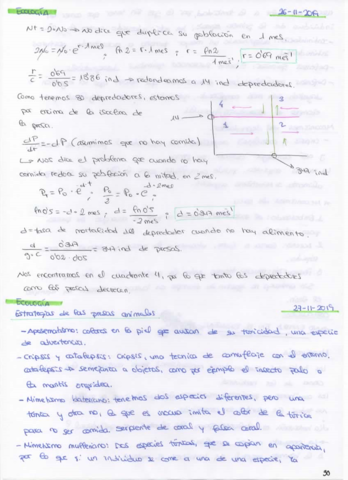 Ecología 26-11-2019
Nt = 2·N0 → No dice que duplica su población en 1 mes.
2N0 = N0 · e^r·1mes ; ln2 = r·1mes ; r = ln2 / 1 mes ; r = 0'69 mes⁻¹
r/c = 0'69/0'05 = 13'86 ind → redondeamos a 14 ind depredadores.
Como tenemos 50 depredadores, estamos
por encima de la isoclina de
la presa.
4 3
14 →
1 2
dP/dt = -dP (asumimos que no hay comida)
↳ Nos dice el problema que cuando no hay
comida reduce su población a la mitad en 2 mes.
Pt = P0 · e^-d·t ; P0/2 = P0 · e^-d·2mes
ln 0'5 = -d·2 mes ; d = ln0'5 / -2 mes ; d = 0'347 mes⁻¹
d = tasa de mortalidad del depredador cuando no hay alimento
d/g·c = 0'347 / 0'02 · 0'05 = 347 ind de presas.
347 ind
Nos encontramos en el cuadrante 4, por lo que tanto los depredadores
como las presas decrecen
Ecología 27-11-2019
Estrategias de las presas animales
- Aposematismo: colores en la piel que avisan de su toxicidad, una especie
de advertencia.
- Cripsis y catalepsis: Cripsis, una técnica de camuflaje con el entorno,
catalepsis → semejanza a objetos, como por ejemplo el insecto palo o
la mantis orquídea.
- Mimetismo batesiano: tenemos dos especies diferentes, pero una
tóxica y otra no, la que es inocua imita el color de la tóxica
para no ser comida serpiente de coral y falsa coral.
- Mimetismo mulleriano: Dos especies tóxicas, que se copian en apariencia,
por lo que si un individuo se come a una de una especie, la
50